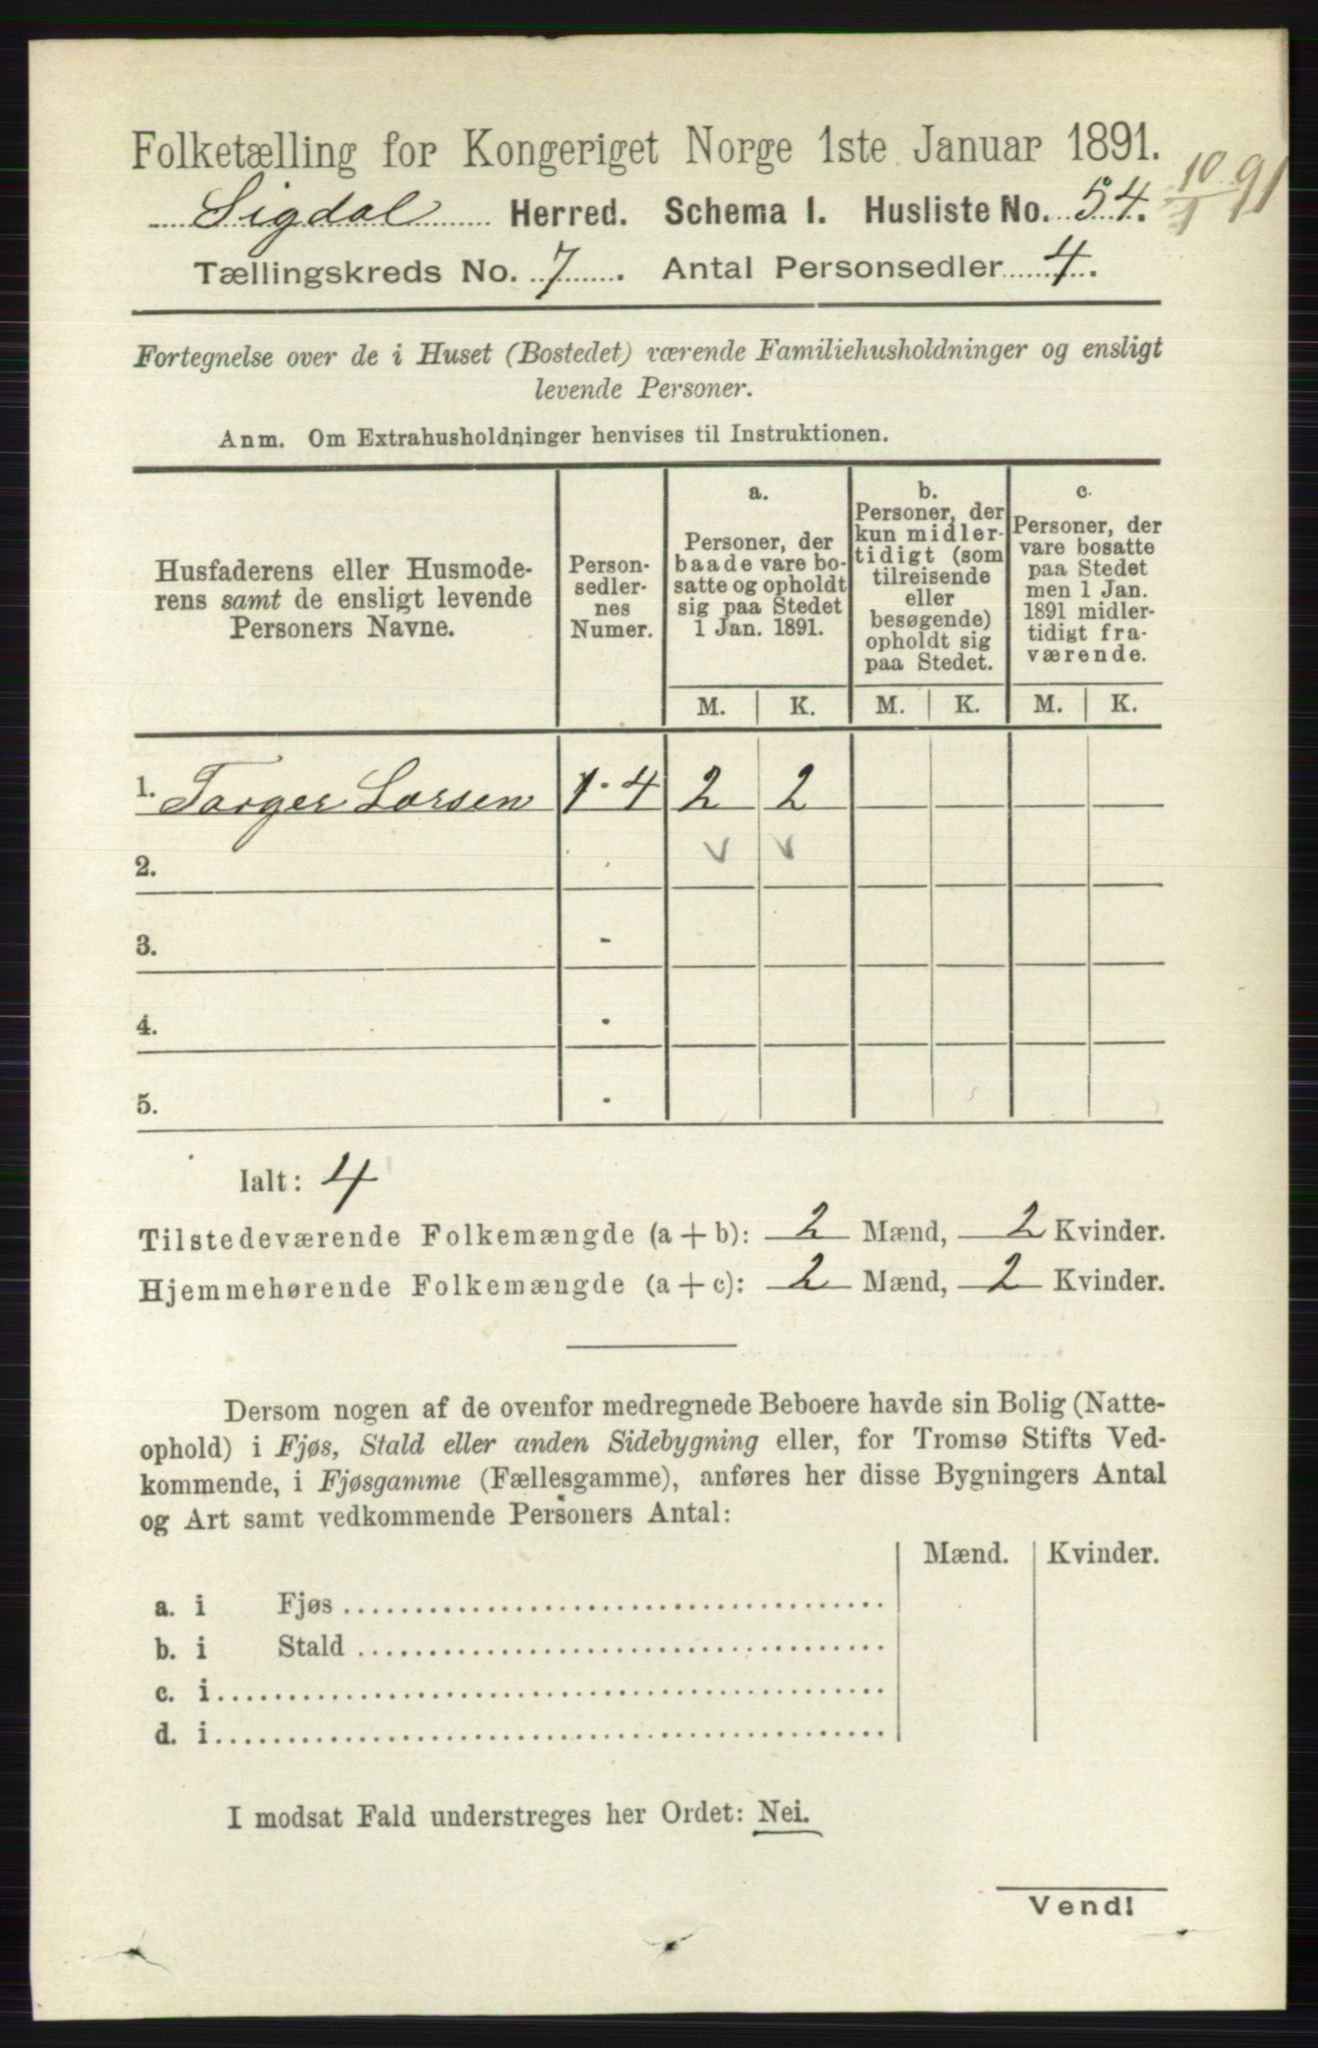 Folketælling for Kongeriget Norge 1ste Januar 1891.
Sigdal Herred. Schema I. Husliste No. 54. 10/1 91
Tællingskreds No. 7. Antal Personsedler 4.
Fortegnelse over de i Huset (Bostedet) værende Familiehusholdninger og ensligt
levende Personer.
Anm. Om Extrahusholdninger henvises til Instruktionen.
Husfaderens eller Husmode-
rens samt de ensligt levende
Personers Navne.
Person-
sedler-
nes
Numer.
a.
Personer, der
baade vare bo-
satte og opholdt
sig paa Stedet
1 Jan. 1891.
b.
Personer, der
kun midler-
tidigt (som
tilreisende
eller
besøgende)
opholdt sig
paa Stedet.
c.
Personer, der
vare bosatte
paa Stedet
men 1 Jan.
1891 midler-
tidigt fra-
værende.
M. K. M. K. M. K.
1. Torger Larsen 1-4 2 2
2.
3. -
4. -
5. -
Ialt: 4
Tilstedeværende Folkemængde (a + b): 2 Mænd, 2 Kvinder.
Hjemmehørende Folkemængde (a + c): 2 Mænd, 2 Kvinder.
Dersom nogen af de ovenfor medregnede Beboere havde sin Bolig (Natte-
ophold) i Fjøs, Stald eller anden Sidebygning eller, for Tromsø Stifts Ved-
kommende, i Fjøsgamme (Fællesgamme), anføres her disse Bygningers Antal
og Art samt vedkommende Personers Antal:
Mænd. Kvinder.
a. i Fjøs
b. i Stald
c. i
d. i
I modsat Fald understreges her Ordet: Nei.
Vend!